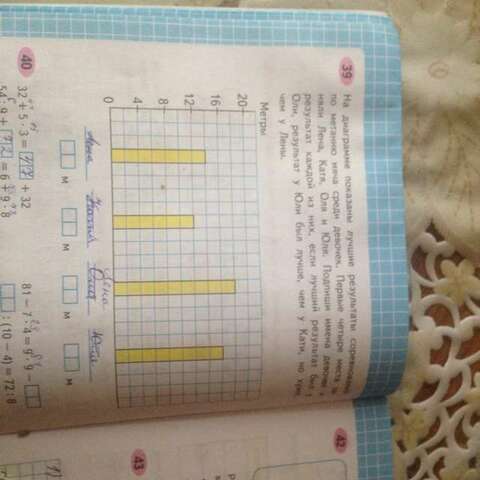 39 На диаграмме показаны лучшие результаты соревнования
по метанию мяча среди девочек. Первые четыре места
няли Лена, Катя, Оля и Юля. Подпиши имена девочек и
результат каждой из них, если лучший результат был у
Оли, результат у Юли был лучше, чем у Кати, но хуже,
чем у Лены.
Метры
20
16
12
8
4
0
Лена
Юля
м м м м
40 32 + 5 · 3 = + 32
81 − 7 · 4 = 9 · 9 −
54 : 9 + = 6 + 9 : 8
: (10 − 4) = 72 : 8
42
43